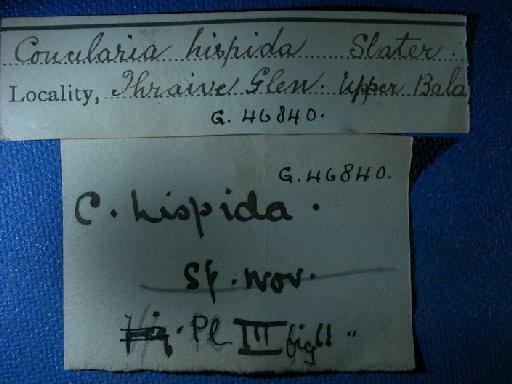 Conularia hispida Slater.
Locality, Thraive Glen. Upper Bala
G. 46840.
G. 46840.
C. hispida.
Sp. nov.
Pl III fig 11